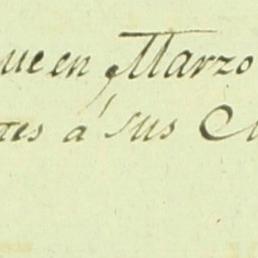 que en Marzo
tes á sus